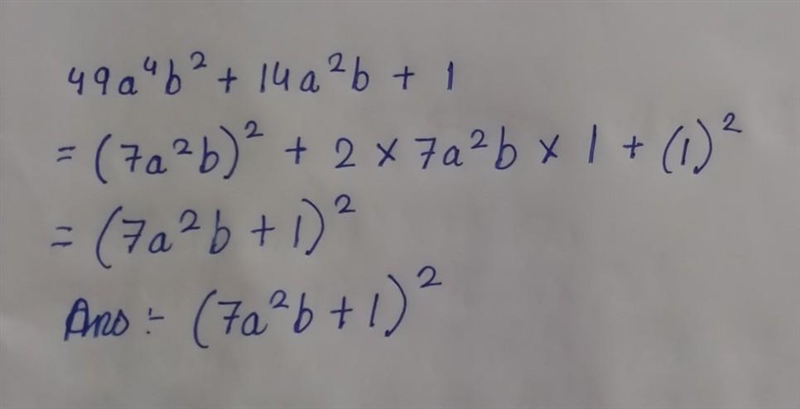 49a⁴b² + 14a²b + 1
= (7a²b)² + 2 × 7a²b × 1 + (1)²
= (7a²b + 1)²
Ans :- (7a²b + 1)²